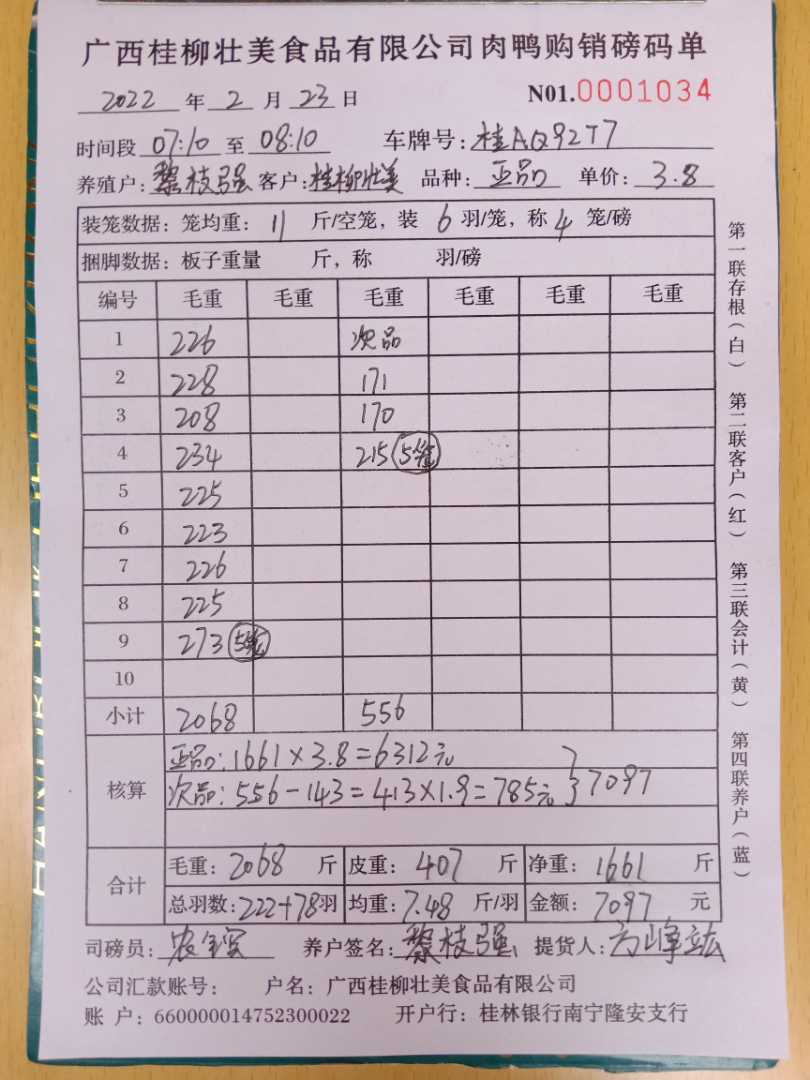 广西桂柳壮美食品有限公司肉鸭购销磅码单
2022 年 2 月 23 日 N01.0001034
时间段 07:10 至 08:10 车牌号: 桂AQ92T7
养殖户: 黎枝强 客户: 桂柳壮美 品种: 正品 单价: 3.8
装笼数据: 笼均重: 11 斤/空笼, 装 6 羽/笼, 称 4 笼/磅
捆脚数据: 板子重量 斤, 称 羽/磅
编号 毛重 毛重 毛重 毛重 毛重 毛重
1 226 次品
2 228 171
3 208 170
4 234 215 (5笼)
5 225
6 223
7 226
8 225
9 273 (5笼)
10
小计 2068 556
核算 正品: 1661×3.8=6312元
次品: 556-143=413×1.9=785元 } 7097
合计 毛重: 2068 斤 皮重: 407 斤 净重: 1661 斤
总羽数: 222+78羽 均重: 7.48 斤/羽 金额: 7097 元
司磅员: 养户签名: 黎枝强 提货人:
公司汇款账号: 户名: 广西桂柳壮美食品有限公司
账 户: 660000014752300022 开户行: 桂林银行南宁隆安支行
第一联存根(白) 第二联客户(红) 第三联会计(黄) 第四联养户(蓝)